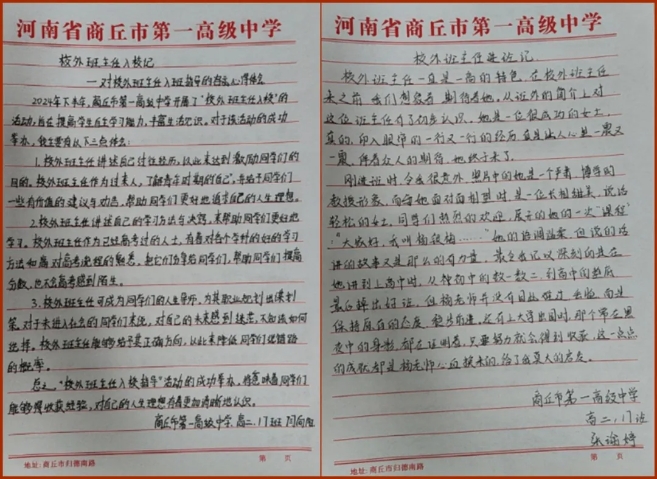 河南省商丘市第一高级中学
校外班主任入校记
——对校外班主任入班指导的内容心得体会
2024年下半年，商丘市第一高级中学开展了“校外班主任入校”的
活动，旨在提高学生自主学习能力，丰富生活见识。对于该活动的成功
举办，我主要有以下三点体会：
1.校外班主任讲述自己过往经历，以此来达到激励同学们的
目的。校外班主任作为过来人，了解青年时期的自己，并给予同学们一
些有价值的建议与动态，帮助同学们更好地追求自己的人生理想。
2.校外班主任讲述自己的学习方法与决窍，来帮助同学们更好地
学习。校外班主任作为已过高考过的人士，有着对各个学科的好的学习
方法和属对高考流程的熟悉，把它们分享给同学们，帮助同学们提高
分数，也不会高考感到陌生。
3.校外班主任可成为同学们的人生导师，为其职业规划出谋划
策。对于未进入社会的同学们来说，对自己的未来感到迷茫，不知该如何
选择。校外班主任能够给予其正确方向，以此来降低同学们选错路
的概率。
总之，“校外班主任入校指导”活动的成功举办，将意味着同学们
能够慢收获经验，对自己的人生理想有着更加清晰地认识。
商丘市第一高级中学 高二、17班 闫向阳
地址：商丘市归德南路 第 页
河南省商丘市第一高级中学
校外班主任进班记
校外班主任一直是一高的特色，在校外班主任
未之前，我们想象着，期待着她，从班外的简介上对
这位班主任有了初步认识，她是一位很成功的女士，
真的，印入眼帘的一行又一行的经历真是让人心里一震又
一震，伴着众人的期待，她终于来了。
刚进班时，令我很意外，照片中的她是一个严肃，博学的
教授形象，而当她面对面相望时，是一位长相甜美，说话
轻松的女士，同学们热烈的欢迎，展示的她的一次“课程”
！“大家好，我叫杨俊梅……”她的语调温柔，但说的话
讲的故事又是那么的有力量，最令我记忆深刻的是在
她讲到上高中时，从初中的数一数二，到高中的
但杨老师并没有因此
保持原有的态度，稳步前进，没有上大学出国时，那个常在黑
夜中的身影，都在证明着，只要努力就会得到收获，这一点点
的成就都是杨老师心血换来的，给了我莫大的启发。
商丘市第一高级中学
高二、17班
张诗婷
地址：商丘市归德南路 第 页